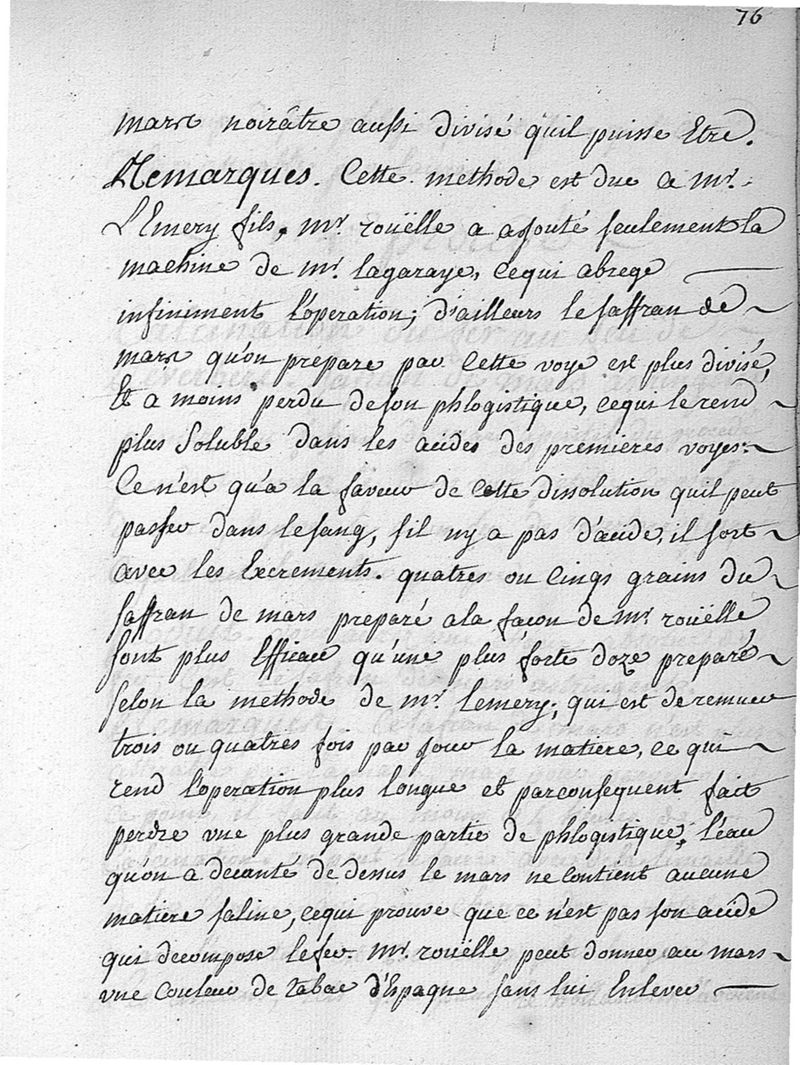 76
mars noirâtre aussi divisé qu'il puisse Etre.
Remarques. Cette methode est due a mr.
L'Emery fils, mr. rouëlle a ajouté seulement la
machine de mr. lagaraye, cequi abrege
infiniment l'operation; d'ailleurs le saffran de
mars qu'on prepare par cette voye est plus divisé,
Et a moins perdu de son phlogistique, cequi le rend
plus Soluble dans les acides des premieres voyes.
Ce n'est qu'a la faveur de cette dissolution qu'il peut
passer dans le sang, s'il n'y a pas d'acide, il sort
avec les Excrements. quatres ou cinqs grains du
saffran de mars preparé a la façon de mr. rouëlle
sont plus Efficace qu'une plus forte doze preparé
selon la methode de mr. lemery; qui est de remuer
trois ou quatres fois par jour la matiere, ce qui
rend l'operation plus longue et parconsequent fait
perdre une plus grande partie de phlogistique, l'eau
qu'on a decanté de dessus le mars ne contient aucune
matiere saline, cequi prouve que ce n'est pas son acide
qui decompose le fer. mr. rouëlle peut donner au mars
une couleur de tabac d'Espagne sans lui Enlever